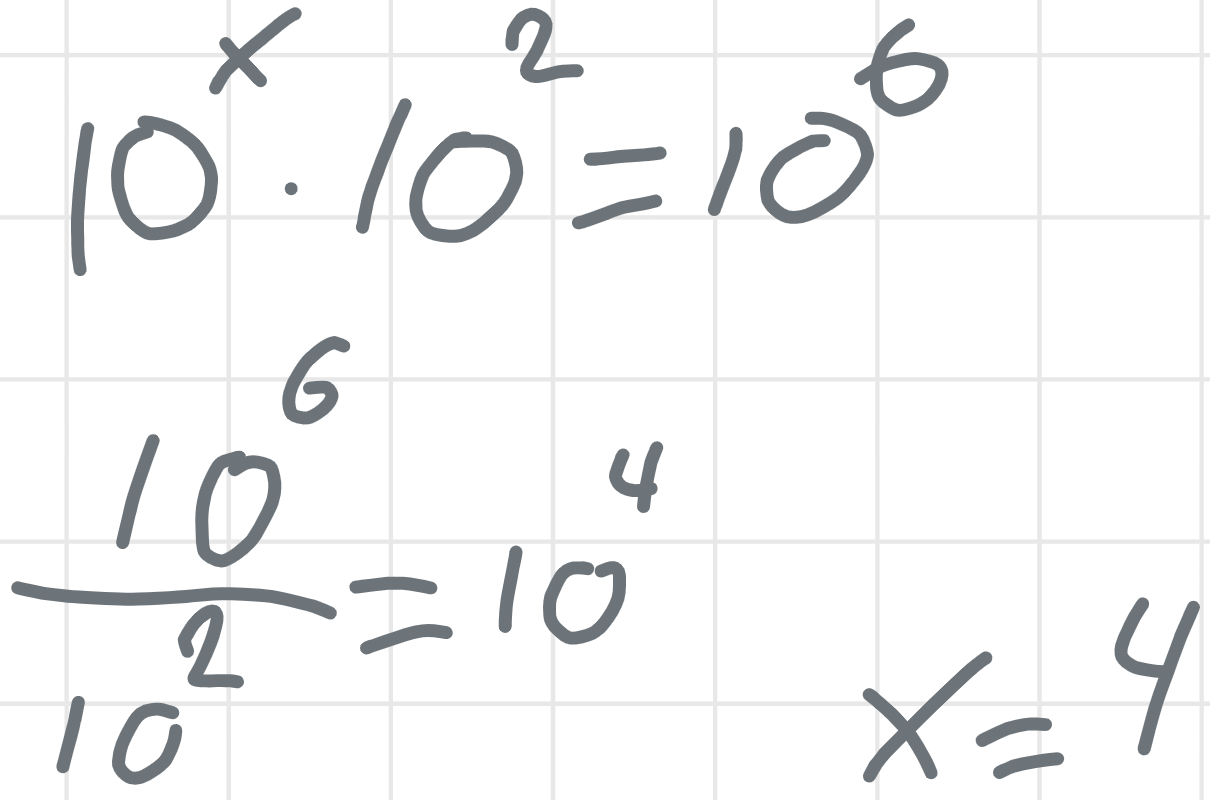 10^x · 10^2 = 10^6
10^6 / 10^2 = 10^4
x = 4